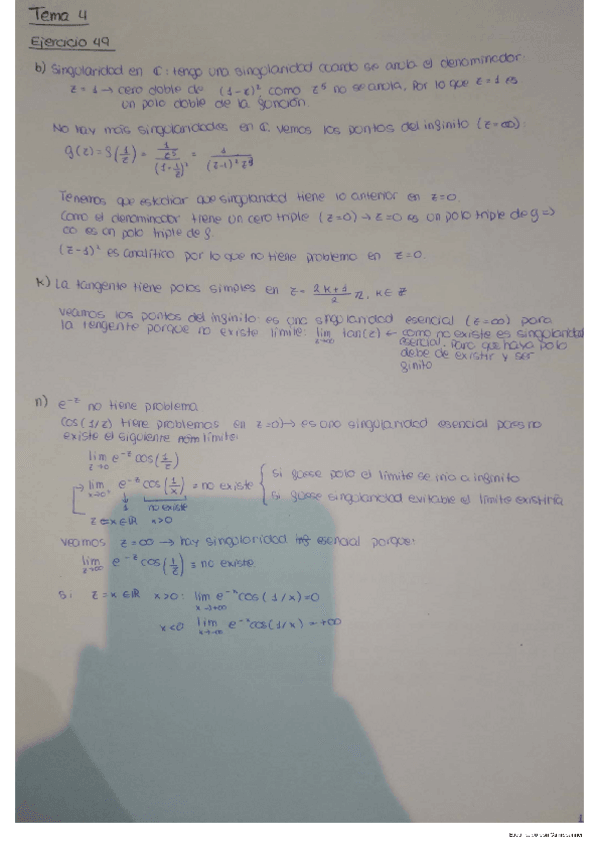 Tema 4
Ejercicio 49
b) Singularidad en ℂ: tengo una singularidad cuando se anula el denominador:
z = 1 → cero doble de (1-z)², como z⁵ no se anula, por lo que z = 1 es
un polo doble de la función.
No hay más singularidades en ℂ, vemos los puntos del infinito (z = ∞):
g(z) = f(1/z) = (1/z⁵)/(1-1/z)² = 1/((z-1)² z³)
Tenemos que estudiar que singularidad tiene lo anterior en z=0.
Como el denominador tiene un cero triple (z=0) → z=0 es un polo triple de g =>
∞ es un polo triple de f.
(z-1)² es analítico por lo que no tiene problema en z=0.
k) La tangente tiene polos simples en z = (2k+1)/2 π, k ∈ ℤ
Veamos los puntos del infinito: es una singularidad esencial (z=∞) para
la tangente porque no existe límite: lim tan(z) ← como no existe es singularidad
esencial. Para que haya polo
debe de existir y ser
finito
n) e^{-z} no tiene problema
cos(1/z) tiene problemas en z=0 → es una singularidad esencial pues no
existe el siguiente límite:
lim z→0 e^{-z} cos(1/z)
lim x→0⁺ e^{-x} cos(1/x) = no existe { si fuese polo el límite se iría a infinito
1 no existe si fuese singularidad evitable el límite existiría
z = x ∈ ℝ x>0
Veamos z = ∞ → hay singularidad esencial porque:
lim z→∞ e^{-z} cos(1/z) = no existe.
Si z = x ∈ ℝ x>0: lim x→+∞ e^{-x} cos(1/x) = 0
x<0 lim x→-∞ e^{-x} cos(1/x) = +∞